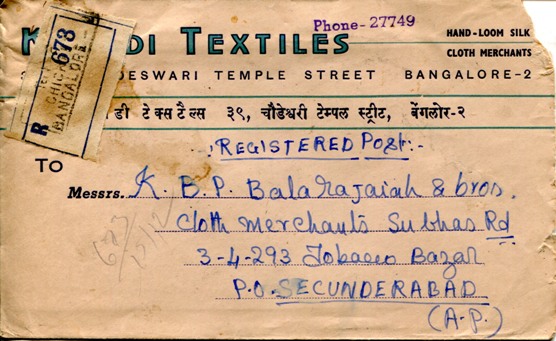 Phone-27749
DI TEXTILES
HAND-LOOM SILK
CLOTH MERCHANTS
DESWARI TEMPLE STREET BANGALORE-2
डी टेक्सटैल्स ३९, चौडेश्वरी टेम्पल स्ट्रीट, बेंगलोर-२
R
678
BANGALORE
:REGISTERED Post:-
TO
Messrs. K. B. P. Balarajaiah & bros.
Cloth Merchants Subhas Rd
3-4-293 Tobacco Bazar
P.O. SECUNDERABAD
(A.P.)